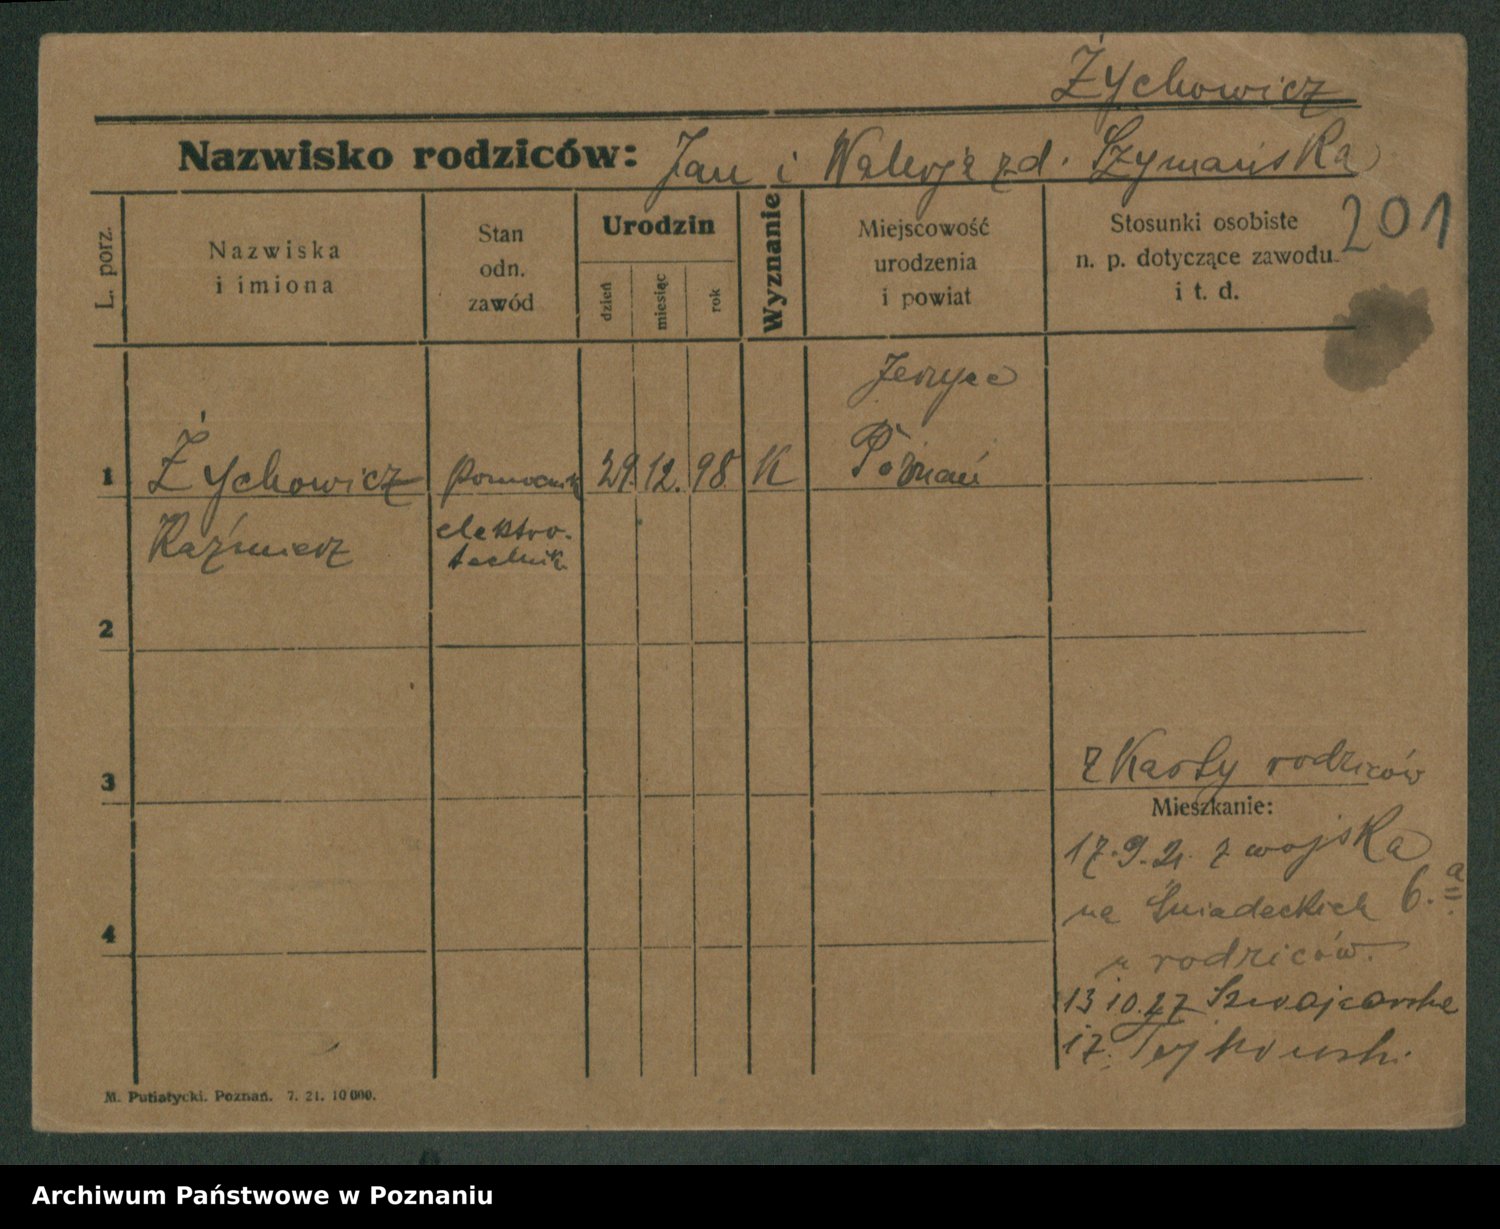 Żychowicz
Nazwisko rodziców: Jan i Walerja zd. Szymańska
201
L. porz.
Nazwiska
i imiona
Stan
odn.
zawód
Urodzin
dzień
miesiąc
rok
Wyznanie
Miejscowość
urodzenia
i powiat
Stosunki osobiste
n. p. dotyczące zawodu
i t. d.
Jerzyce
1 Żychowicz pomocnik 29. 12. 98 K Poznań
Kaźmierz elektro-
technik
2
3
z Karty rodziców
Mieszkanie:
17.9.21. z wojska
na Śniadeckich 6.a
4
u rodziców.
13 10.27 Szwajcarska
17.
M. Putiatycki. Poznań. 7. 21. 10 000.
Archiwum Państwowe w Poznaniu